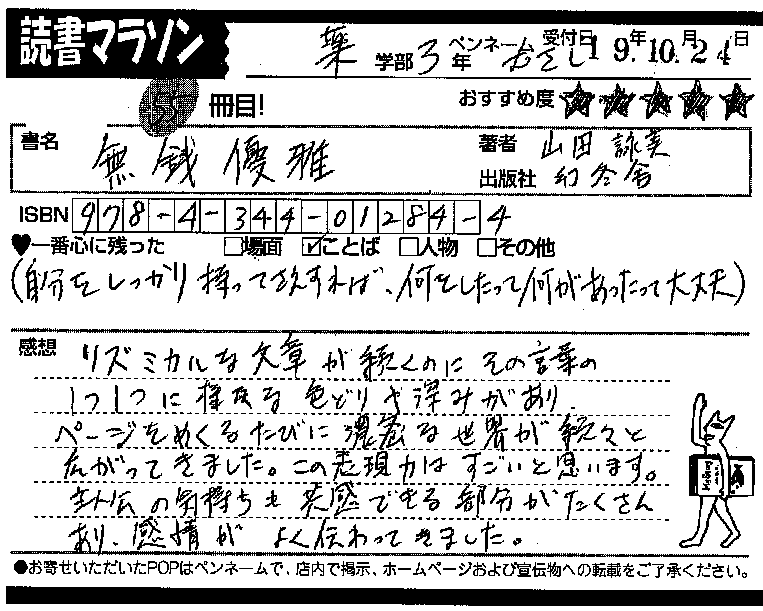 読書マラソン
薬 学部 3年 ペンネーム むさし 受付日 19年.10.月24日
55 冊目! おすすめ度 ★★★★★
書名 無銭優雅 著者 山田詠美
出版社 幻冬舎
ISBN 978-4-344-01284-4
♥一番心に残った □場面 ☑ことば □人物 □その他
(自分をしっかり持って, 何をしたって何があったって大丈夫)
感想 リズミカルな文章が続くのにその言葉の
1つ1つに様々な色どりや深みがあり
ページをめくるたびに濃密な世界が続々と
広がってきました。この表現力はすごいと思います。
主人公の気持ちも共感できる部分がたくさん
あり、感情がよく伝わってきました。
●お寄せいただいたPOPはペンネームで、店内で掲示、ホームページおよび宣伝物への転載をご了承ください。